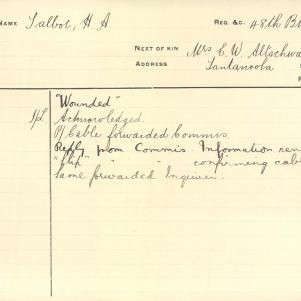 NAME Talbot, H. A. REG. &C. 48th B
NEXT OF KIN Mrs C. W. Altschwa
ADDRESS Tantanoola
"Wounded"
Acknowledged.
P/Cable forwarded Commis.
Reply from Commis. Information ren
" " confirming cab
Same forwarded Enquirer.